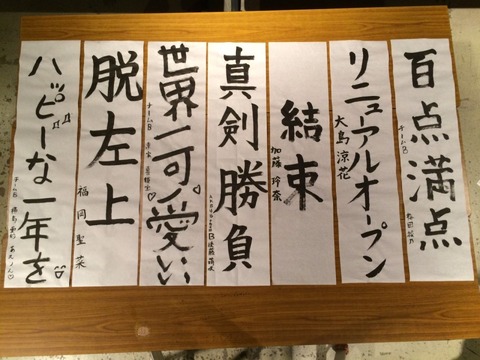 百点満点
チームB
リニューアルオープン
大島涼花
結束
加藤玲奈
真剣勝負
世界一可愛い♡
チームB
脱左上
福岡聖菜
ハッピーな一年を